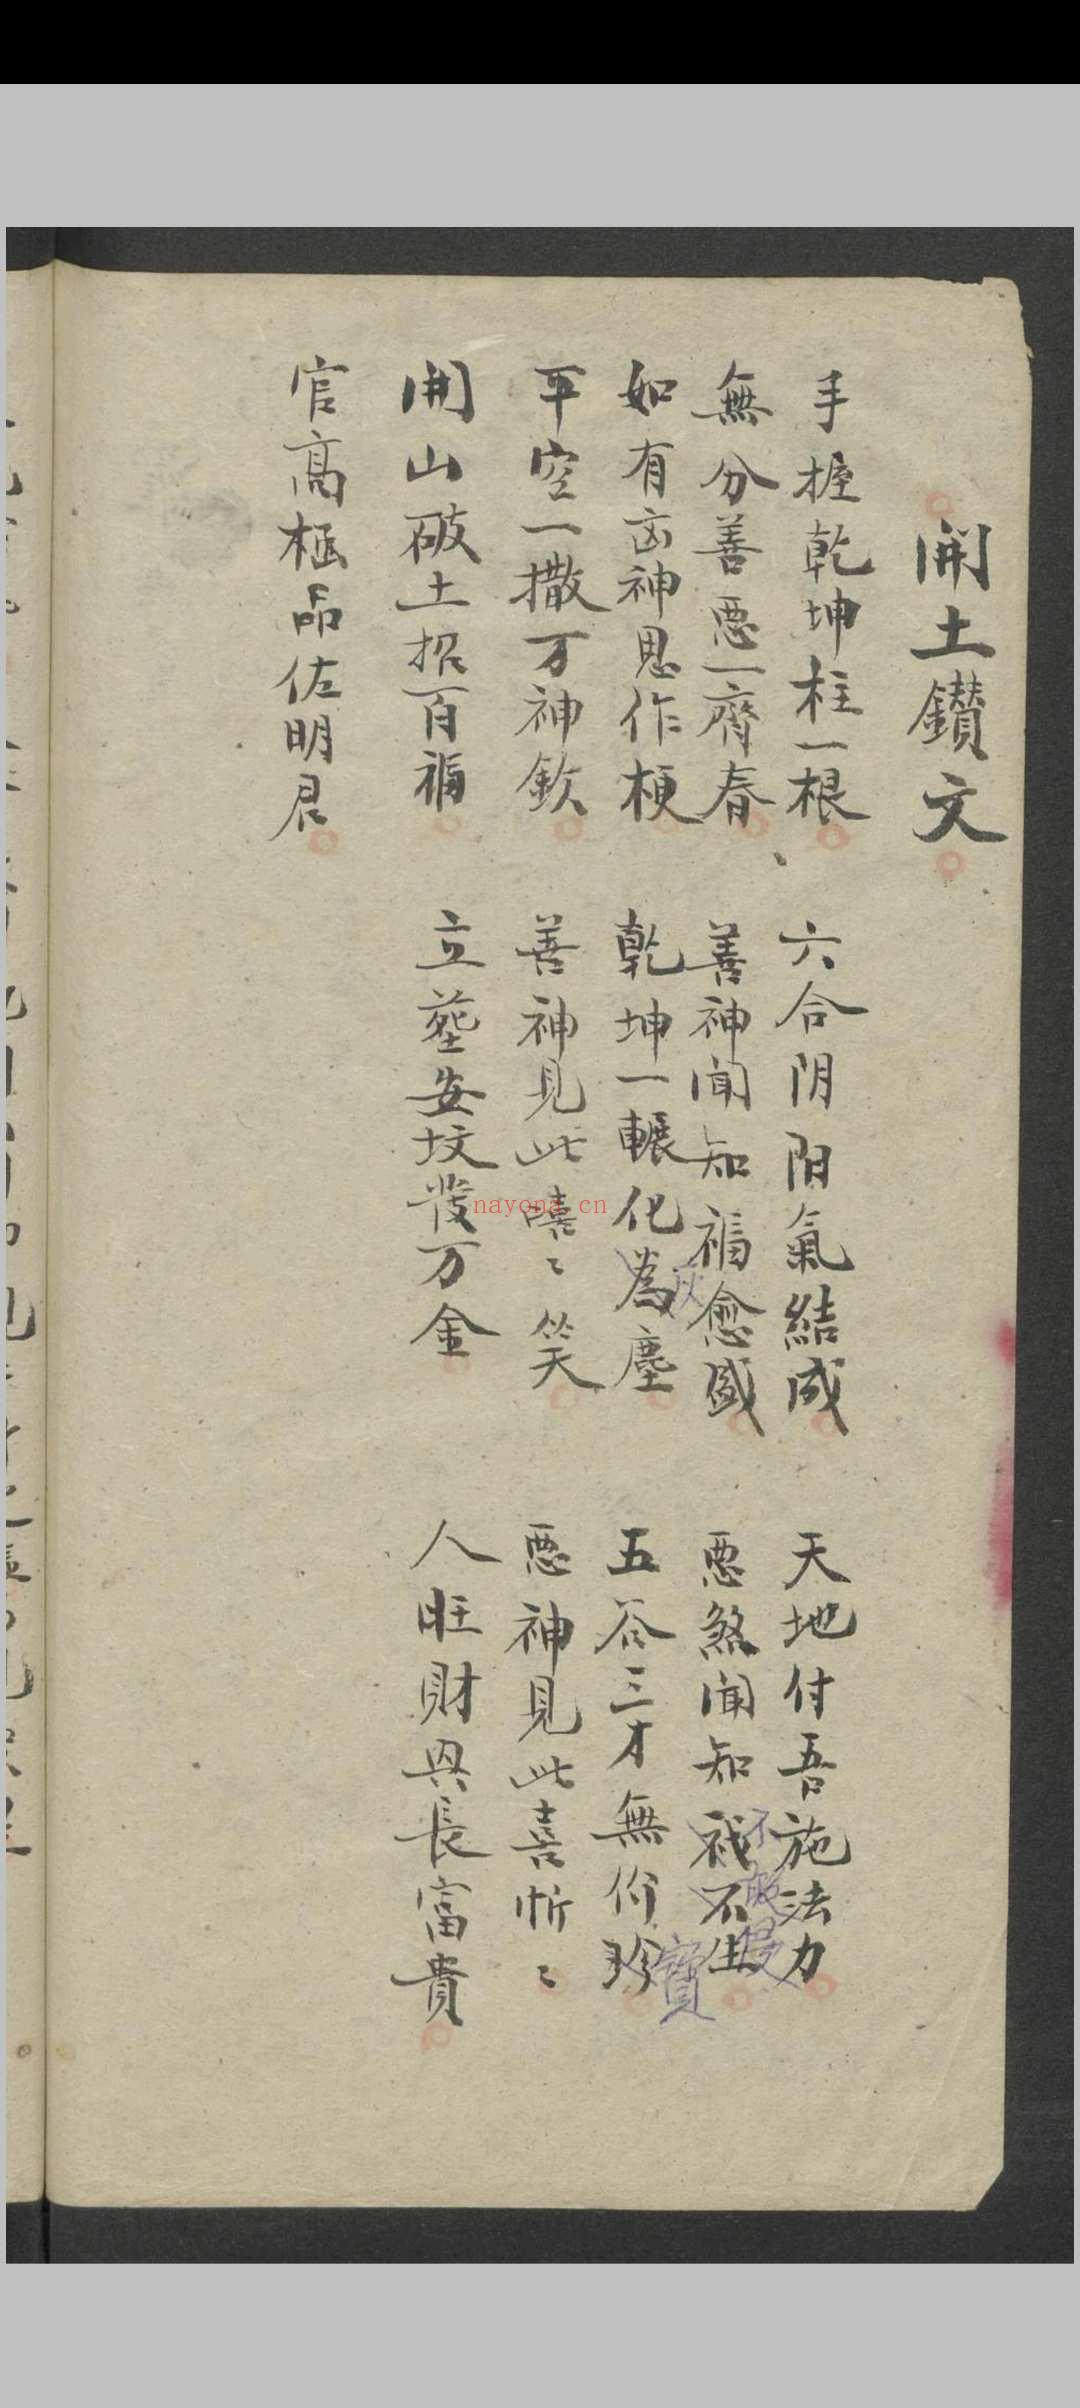 開土鑽文
手握乾坤柱一根 六合阴阳氣結成 天地付吾施法力
無分善惡一齊春 善神聞知福愈盛 惡煞聞知祸不生
不敢侵
如有凶神思作梗 乾坤一輾化為塵 五谷三才無价珍
灰
寶
平空一撒万神欽 善神見此嘻〻笑 惡神見此喜忻〻
開山破土招百福 立莹安坟發万金 人旺財興長富貴
官高極品佐明君
nayona.cn